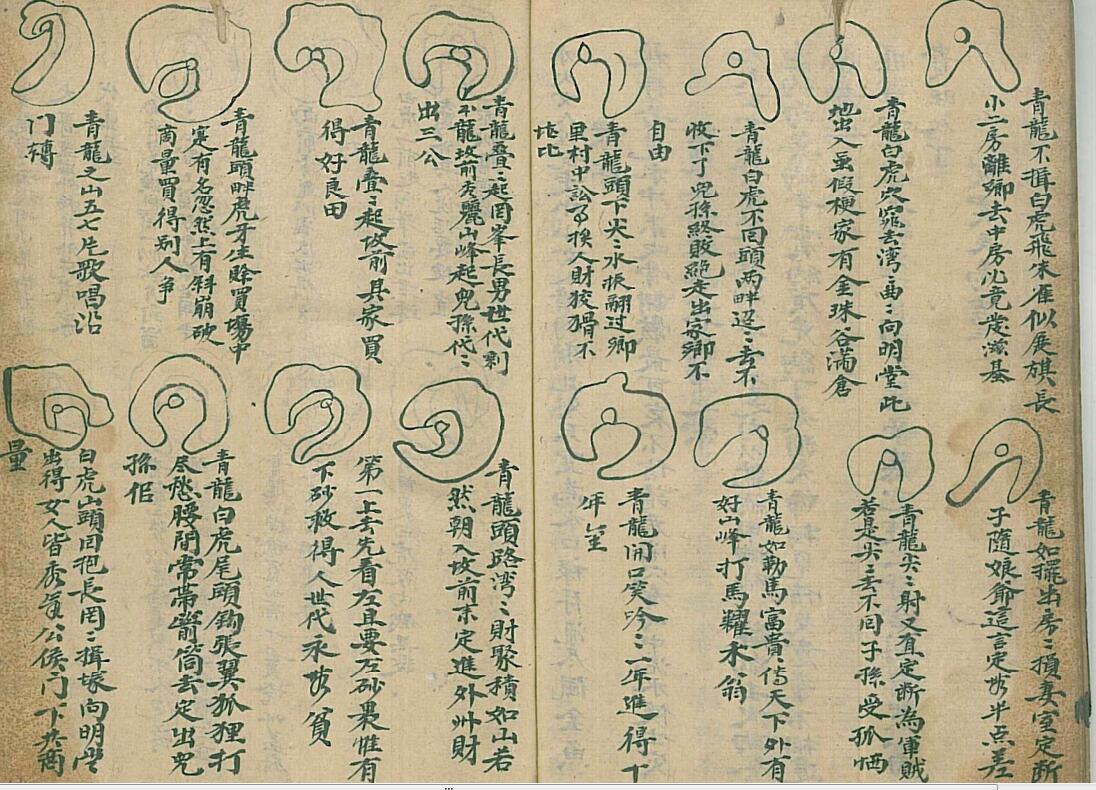 青龍不揖白虎飛朱雀似展旗長
小二房離卿去中房
青龍白虎穴窕玄湾二曲二向明堂此
地出入虽假梗家有金珠谷滿倉
青龍白虎不回頭兩畔迢二去不
收下了兒孫終敗絶走出家卿不
自由
青龍頭下尖二水振翻过卿
里村中訟
人財狡猾不
比
青龍叠二起罔峯長男世代
龍坟前
麗山峰起兒孫代二
出三公
青龍叠二起坟前具家買
得好良田
青龍頭畔虎牙生賒買場中
定有名忽然上有斜崩破
商量買得别人争
青龍之山五七片歌唱沿
门轉
青龍如擺出二房二損妻室定断
子隨娘爺這言定無半点差
青龍尖二射又直定断為軍賊
若是尖二去不回子孫受孤恓
青龍如勒馬富貴傳天下外有
好山峰打馬耀水翁
青龍開口笑吟二二年進得丁
年
青龍頭路湾二財聚積如山若
然朝入坟前来定進外州財
第一上去先看左且要左砂裹惟有
下砂救得人世代永無貧
青龍白虎尾頭鈎張翼狐狸打
尽愁腰間常帶箭筒去定出兒
孫佢
白虎山頭回抱長罔二揖塚向明堂
出得女人皆秀氣公侯门下共商
量